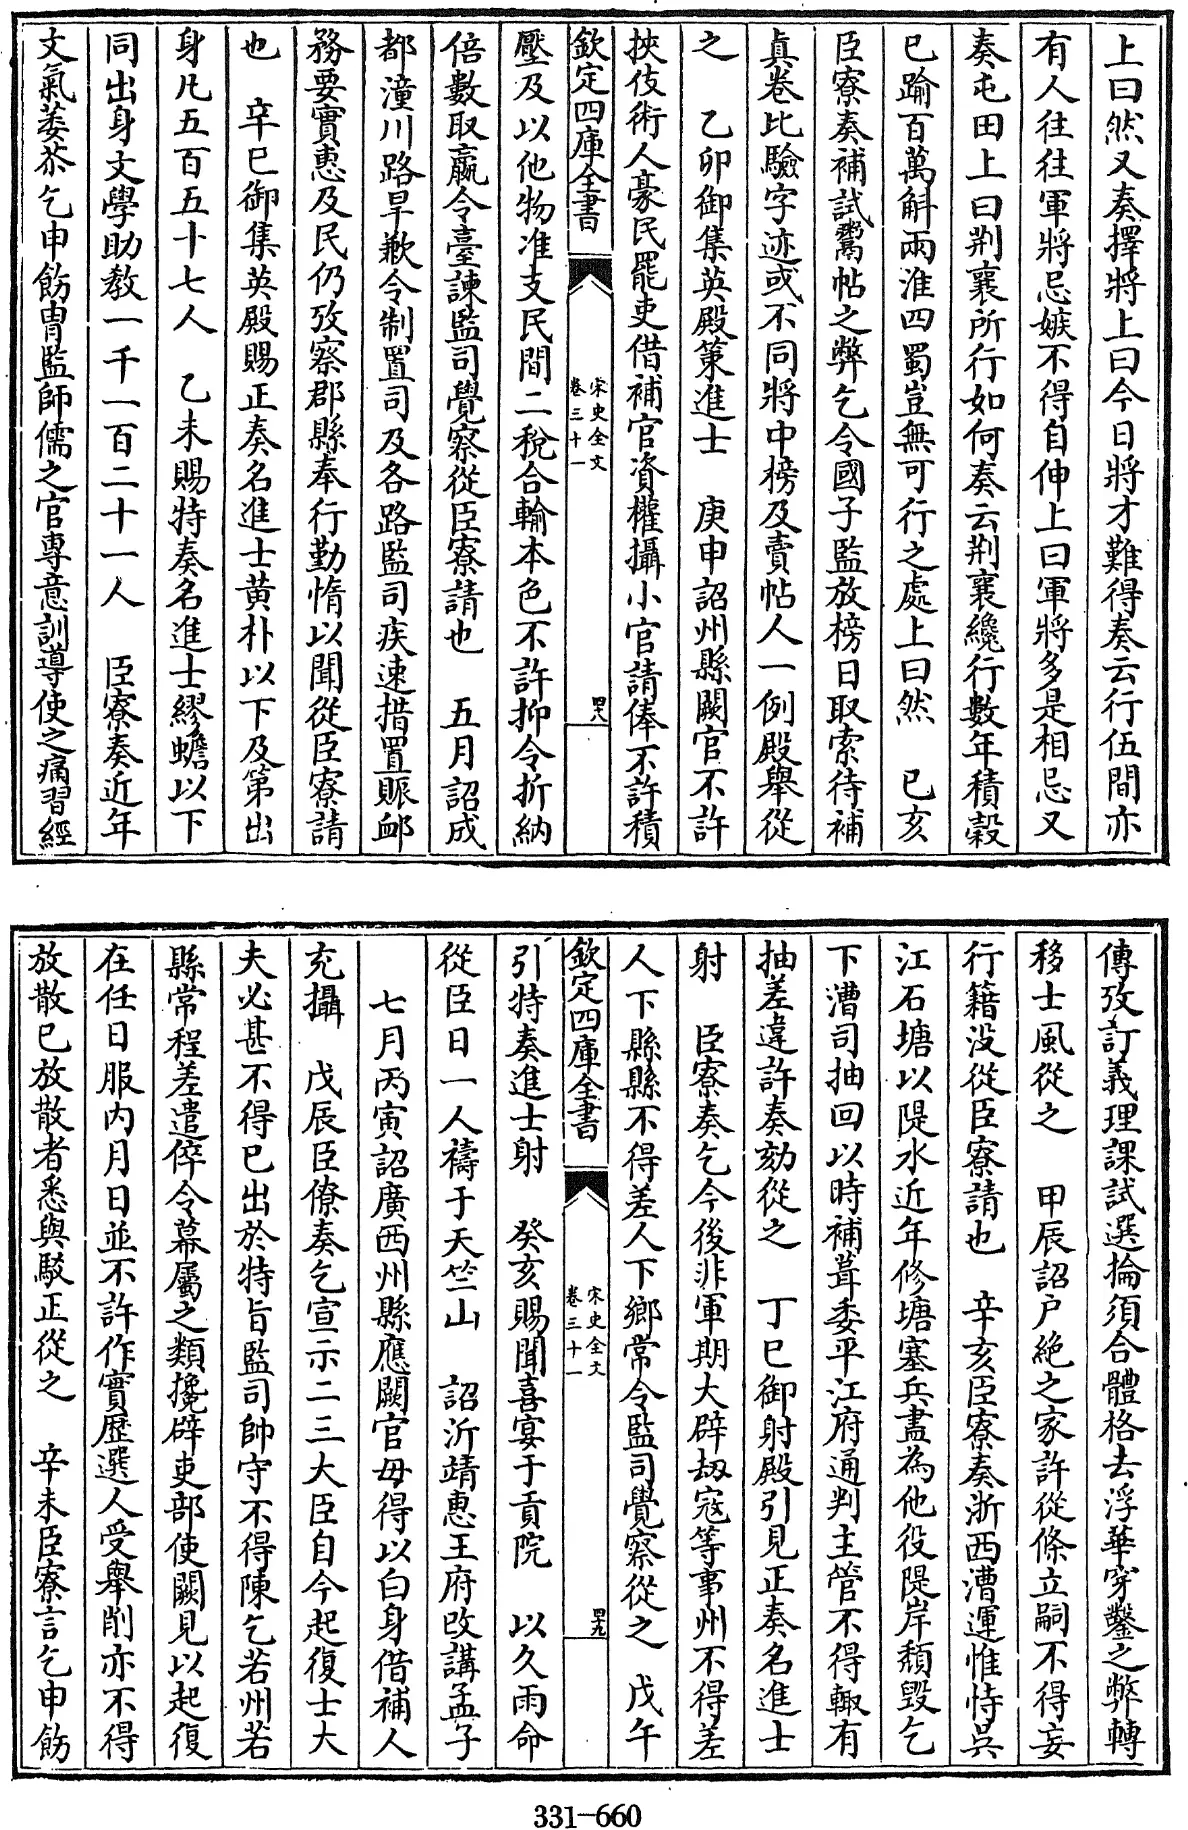 上曰然又奏擇將上曰今日將才難得奏云行伍間亦
有人往往軍將忌嫉不得自伸上曰軍將多是相忌又
奏屯田上曰荆襄所行如何奏云荆襄纔行數年積穀
已踰百萬斛兩淮四蜀豈無可行之處上曰然　己亥
臣寮奏補試鬻帖之弊乞令國子監放榜日取索待補
真卷比驗字迹或不同將中榜及賣帖人一例殿舉從
之　乙卯御集英殿策進士　庚申詔州縣闕官不許
挾伎術人豪民罷吏借補官資權攝小官請俸不許積
欽定四庫全書　宋史全文　卷三十一　四八
壓及以他物准支民間二稅合輸本色不許抑令折納
倍數取贏令臺諫監司覺察從臣寮請也　五月詔成
都潼川路旱歉令制置司及各路監司疾速措置賑卹
務要實惠及民仍攷察郡縣奉行勤惰以聞從臣寮請
也　辛巳御集英殿賜正奏名進士黄朴以下及第出
身凡五百五十七人　乙未賜特奏名進士繆蟾以下
同出身文學助教一千一百二十一人　臣寮奏近年
文氣萎苶乞申飭胄監師儒之官專意訓導使之痛習經
傳攷訂義理課試選掄須合體格去浮華穿鑿之弊轉
移士風從之　甲辰詔户絶之家許從條立嗣不得妄
行籍没從臣寮請也　辛亥臣寮奏浙西漕運惟恃吳
江石塘以隄水近年修塘塞兵盡為他役隄岸頽毁乞
下漕司抽回以時補葺委平江府通判主管不得輙有
抽差違許奏劾從之　丁巳御射殿引見正奏名進士
射　臣寮奏乞今後非軍期大辟刼寇等事州不得差
人下縣縣不得差人下鄉常令監司覺察從之　戊午
欽定四庫全書　宋史全文　卷三十一　四九
引特奏進士射　癸亥賜聞喜宴于貢院　以久雨命
從臣日一人禱于天竺山　詔沂靖惠王府改講孟子
七月丙寅詔廣西州縣應闕官毋得以白身借補人
充攝　戊辰臣僚奏乞宣示二三大臣自今起復士大
夫必甚不得已出於特旨監司帥守不得陳乞若州若
縣常程差遣倅令幕屬之類挽辟吏部使闕見以起復
在任日服内月日並不許作實歷選人受舉削亦不得
放散已放散者悉與駁正從之　辛未臣寮言乞申飭
331-660